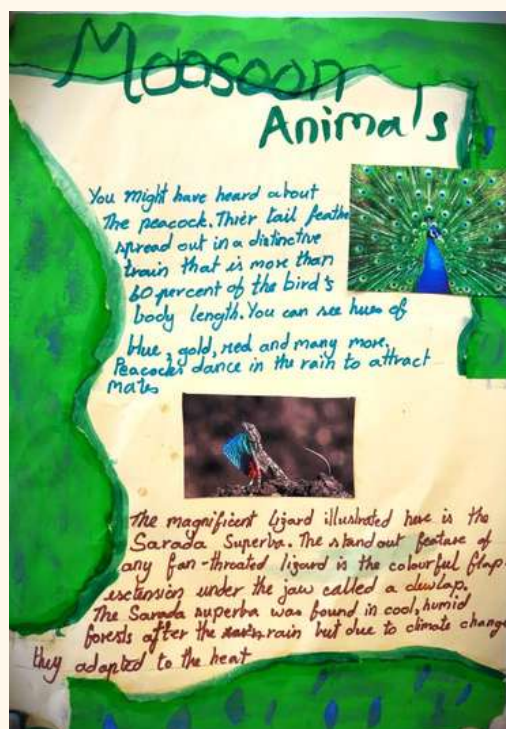 Moosoon
Animals
You might have heard about
The peacock. Thier tail feathe
spread out in a distinctive
train that is more than
60 percent of the bird's
body length. You can see hues of
blue, gold, red and many more.
Peacocks dance in the rain to attract
mates
The magnificent lizard illustrated here is the
Sarada Superba. The standout feature of
any fan-throated lizard is the colourful flap
esctension under the jaw called a dewlap.
The Sarada superba was found in cool, humid
forests after the rain but due to climate change
they adapted to the heat